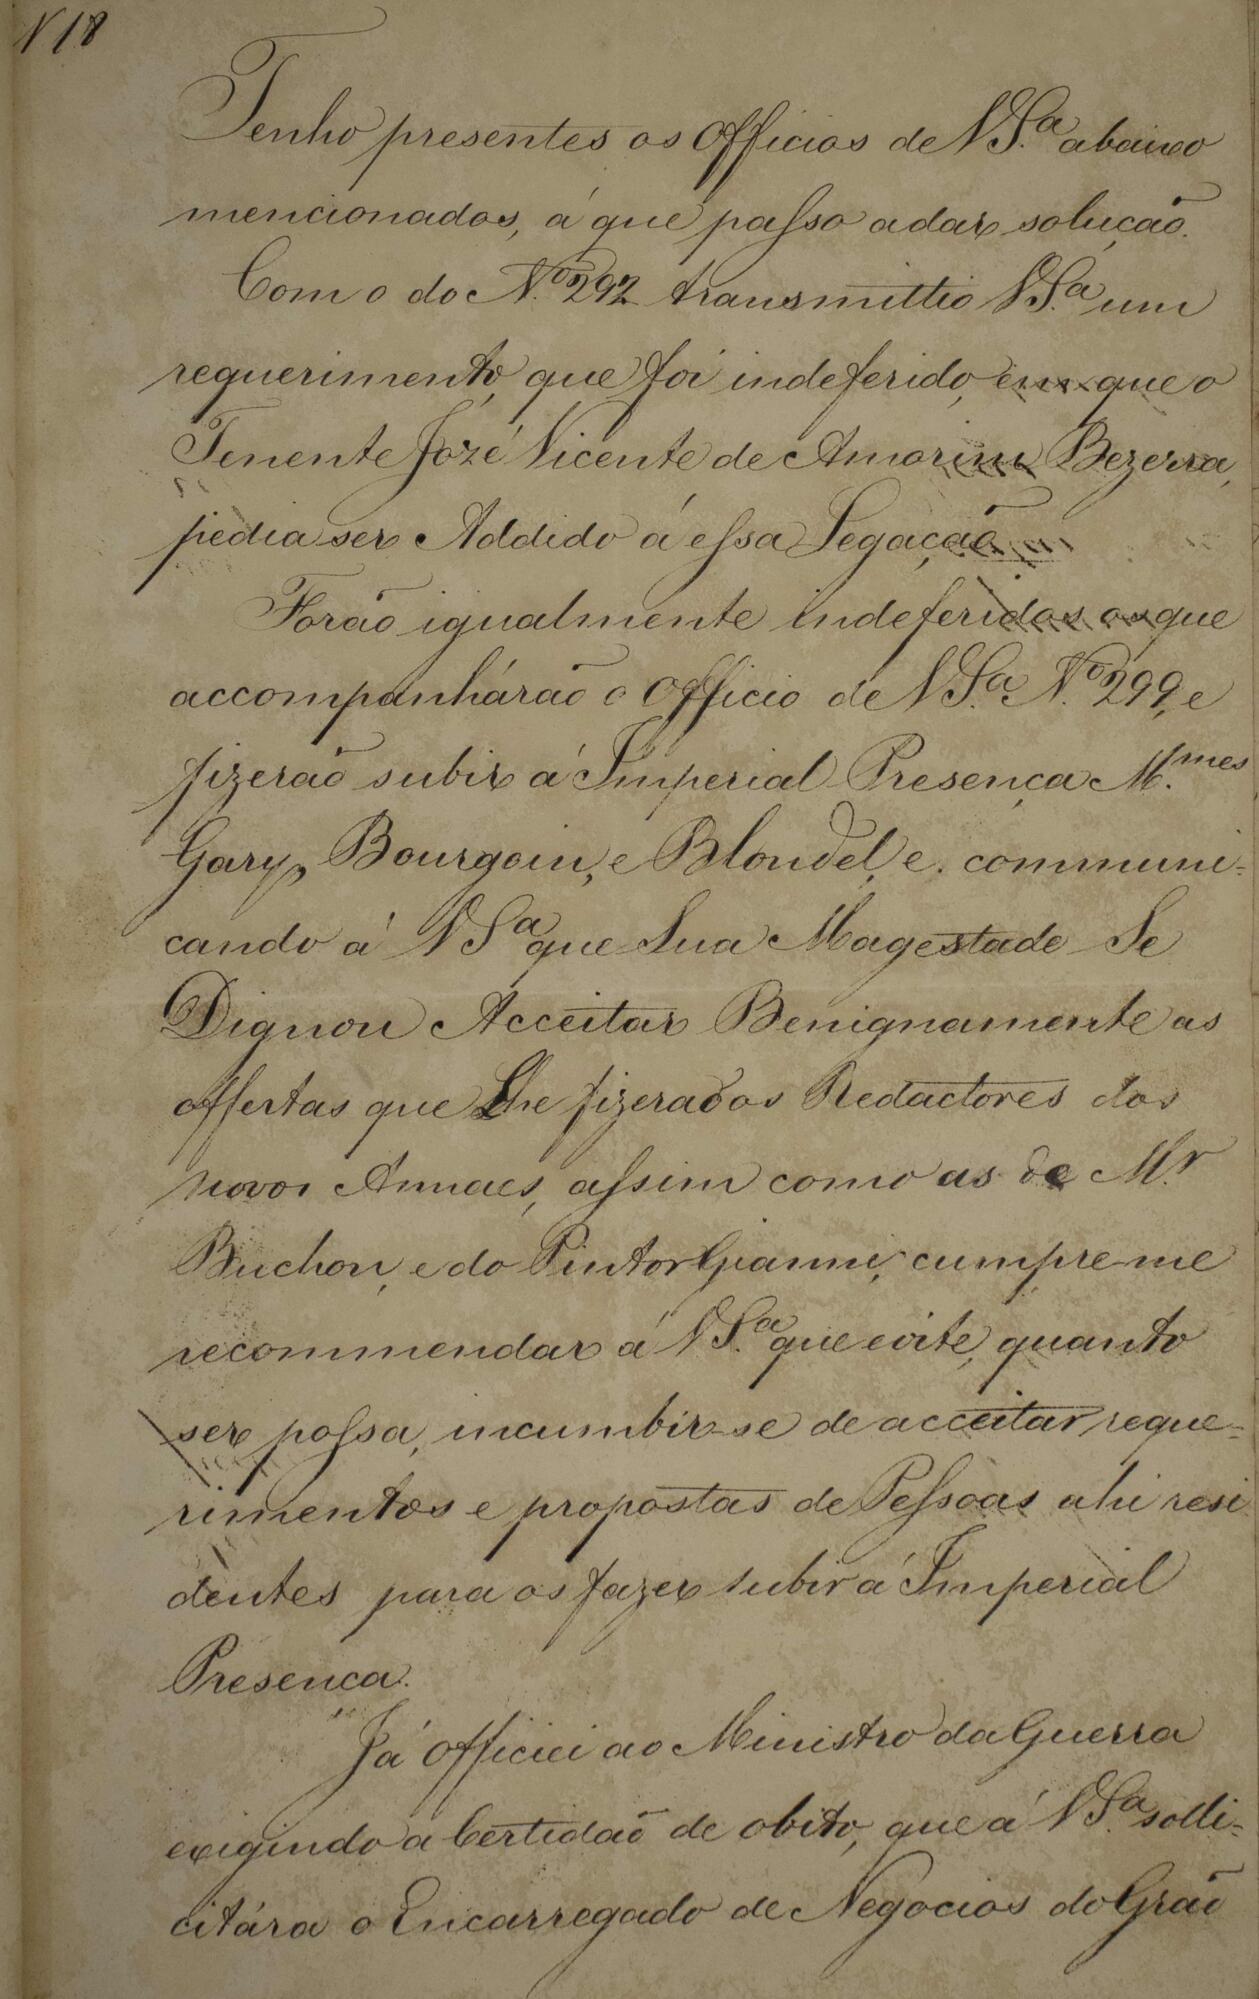 N 18
Tenho presentes os Officios de V S.ª abaixo
mencionados, á que passo a dar solução.
Com o do N.º 292 transmittio V S.ª um
requerimento, que foi indeferido, em que o
Tenente Jozé Vicente de Amorim Bezerra,
pedia ser Addido á essa Legação
Forão igualmente indeferidos os que
accompanhárão o Officio de V S.ª N.º 299, e
fizerão subir á Imperial Presença M.mes
Gary, Bourgoin, e Blondel, e communi-
cando á V Sª que Sua Magestade Se
Dignou Acceitar Benignamente as
offertas que Lhe fizerão os Redactores dos
novos Annaes, assim como as de M.r
Buchon, e do Pintor Gianni, cumpre-me
recommendar á V S.ª que evite, quanto
ser possa, incumbir-se de acceitar reque-
rimentos e propostas de Pessoas ahi resi
dentes para os fazer subir á Imperial
Presença.
Já Officiei ao Ministro da Guerra
exigindo a Certidão de obito, que á V S.ª solli-
citára o Encarregado de Negocios do Grão